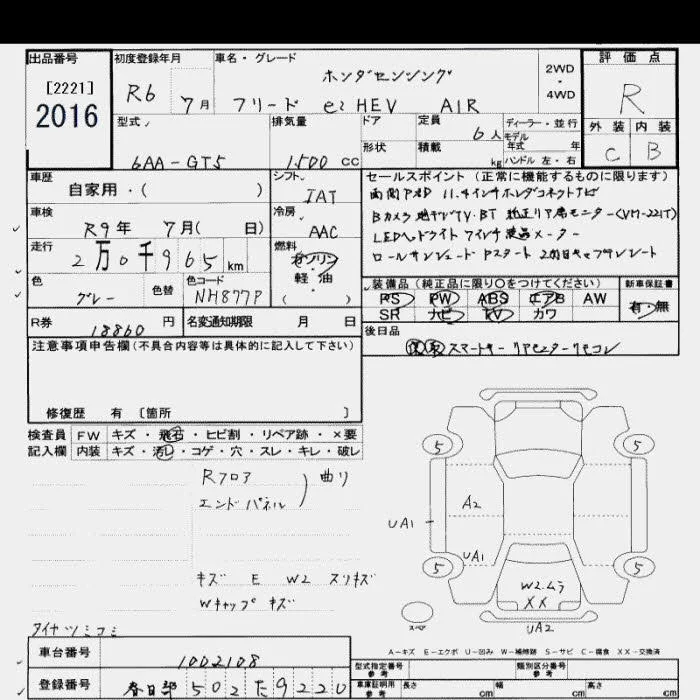 出品番号
[2221]
2016
初度登録年月
R6 7月
車名・グレード
ホンダセンシング
フリード e:HEV AIR
2WD
・
4WD
評価点
R
外装 内装
C B
型式
6AA-GT5
排気量
1500 cc
ドア
形状
定員
6人
積載
kg
ディーラー・並行
モデル
年式 年
ハンドル 左・右
車歴
自家用・( )
シフト
IAT
車検
R9年 7月( 日)
冷房
AAC
走行
2万0千965km
燃料
ガソリン
軽・油
( )
色
グレー
色替
色コード
NH877P
R券
18860円
名変通知期限 月 日
セールスポイント(正常に機能するものに限ります)
両側PスD 11.4インチホンダコネクトナビ
Bカメラ 地デジTV・BT 純正リア席モニター(VM-221T)
LEDヘッドライト 7インチ液晶メーター
ロールサンシェード Pスタート 2列目キャプテンシート
装備品(純正品に限り○をつけてください)
PS PW ABS エアB AW
SR ナビ TV カワ
新車保証書
有・無
後日品
保 取 スマートキー リアモニターリモコン
注意事項申告欄(不具合内容等は具体的に記入して下さい)
修復歴 有〔箇所 〕
検査員
記入欄
FW キズ・飛石・ヒビ割・リペア跡・×要
内装 キズ・汚レ・コゲ・穴・スレ・キレ・破レ
Rフロア
エンドパネル
曲り
キズ E W2 スリキズ
Wキャップ キズ
タイヤツミコミ
5 5
A2
UA1
UA1
5 5
W2ムラ
XX
スペア
UA2
A-キズ E-エクボ U-凹み W-補修跡 S-サビ C-腐食 XX-交換済
車台番号
1002108
登録番号
春日部 502 た 9220
型式指定番号
参考
類別区分番号
参考
車庫証明用
参考
長さ cm 幅 cm 高さ cm